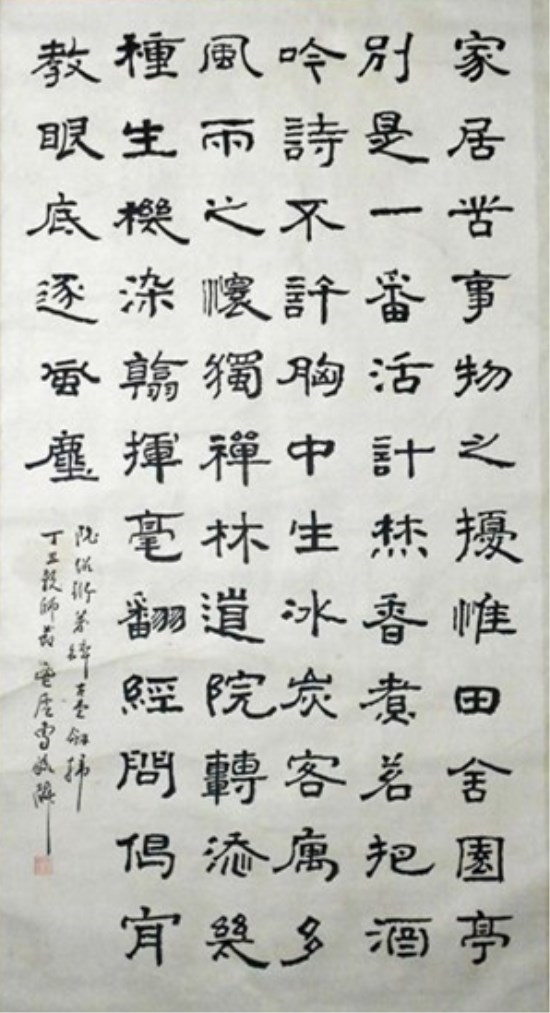 家居苦事物之擾惟田舍園亭
別是一番活計焚香煮茗把酒
吟詩不許胸中生冰炭客寓多
風雨之懷獨禪林道院轉添幾
種生機染翰揮毫翻經問偈肯
教眼底逐風塵